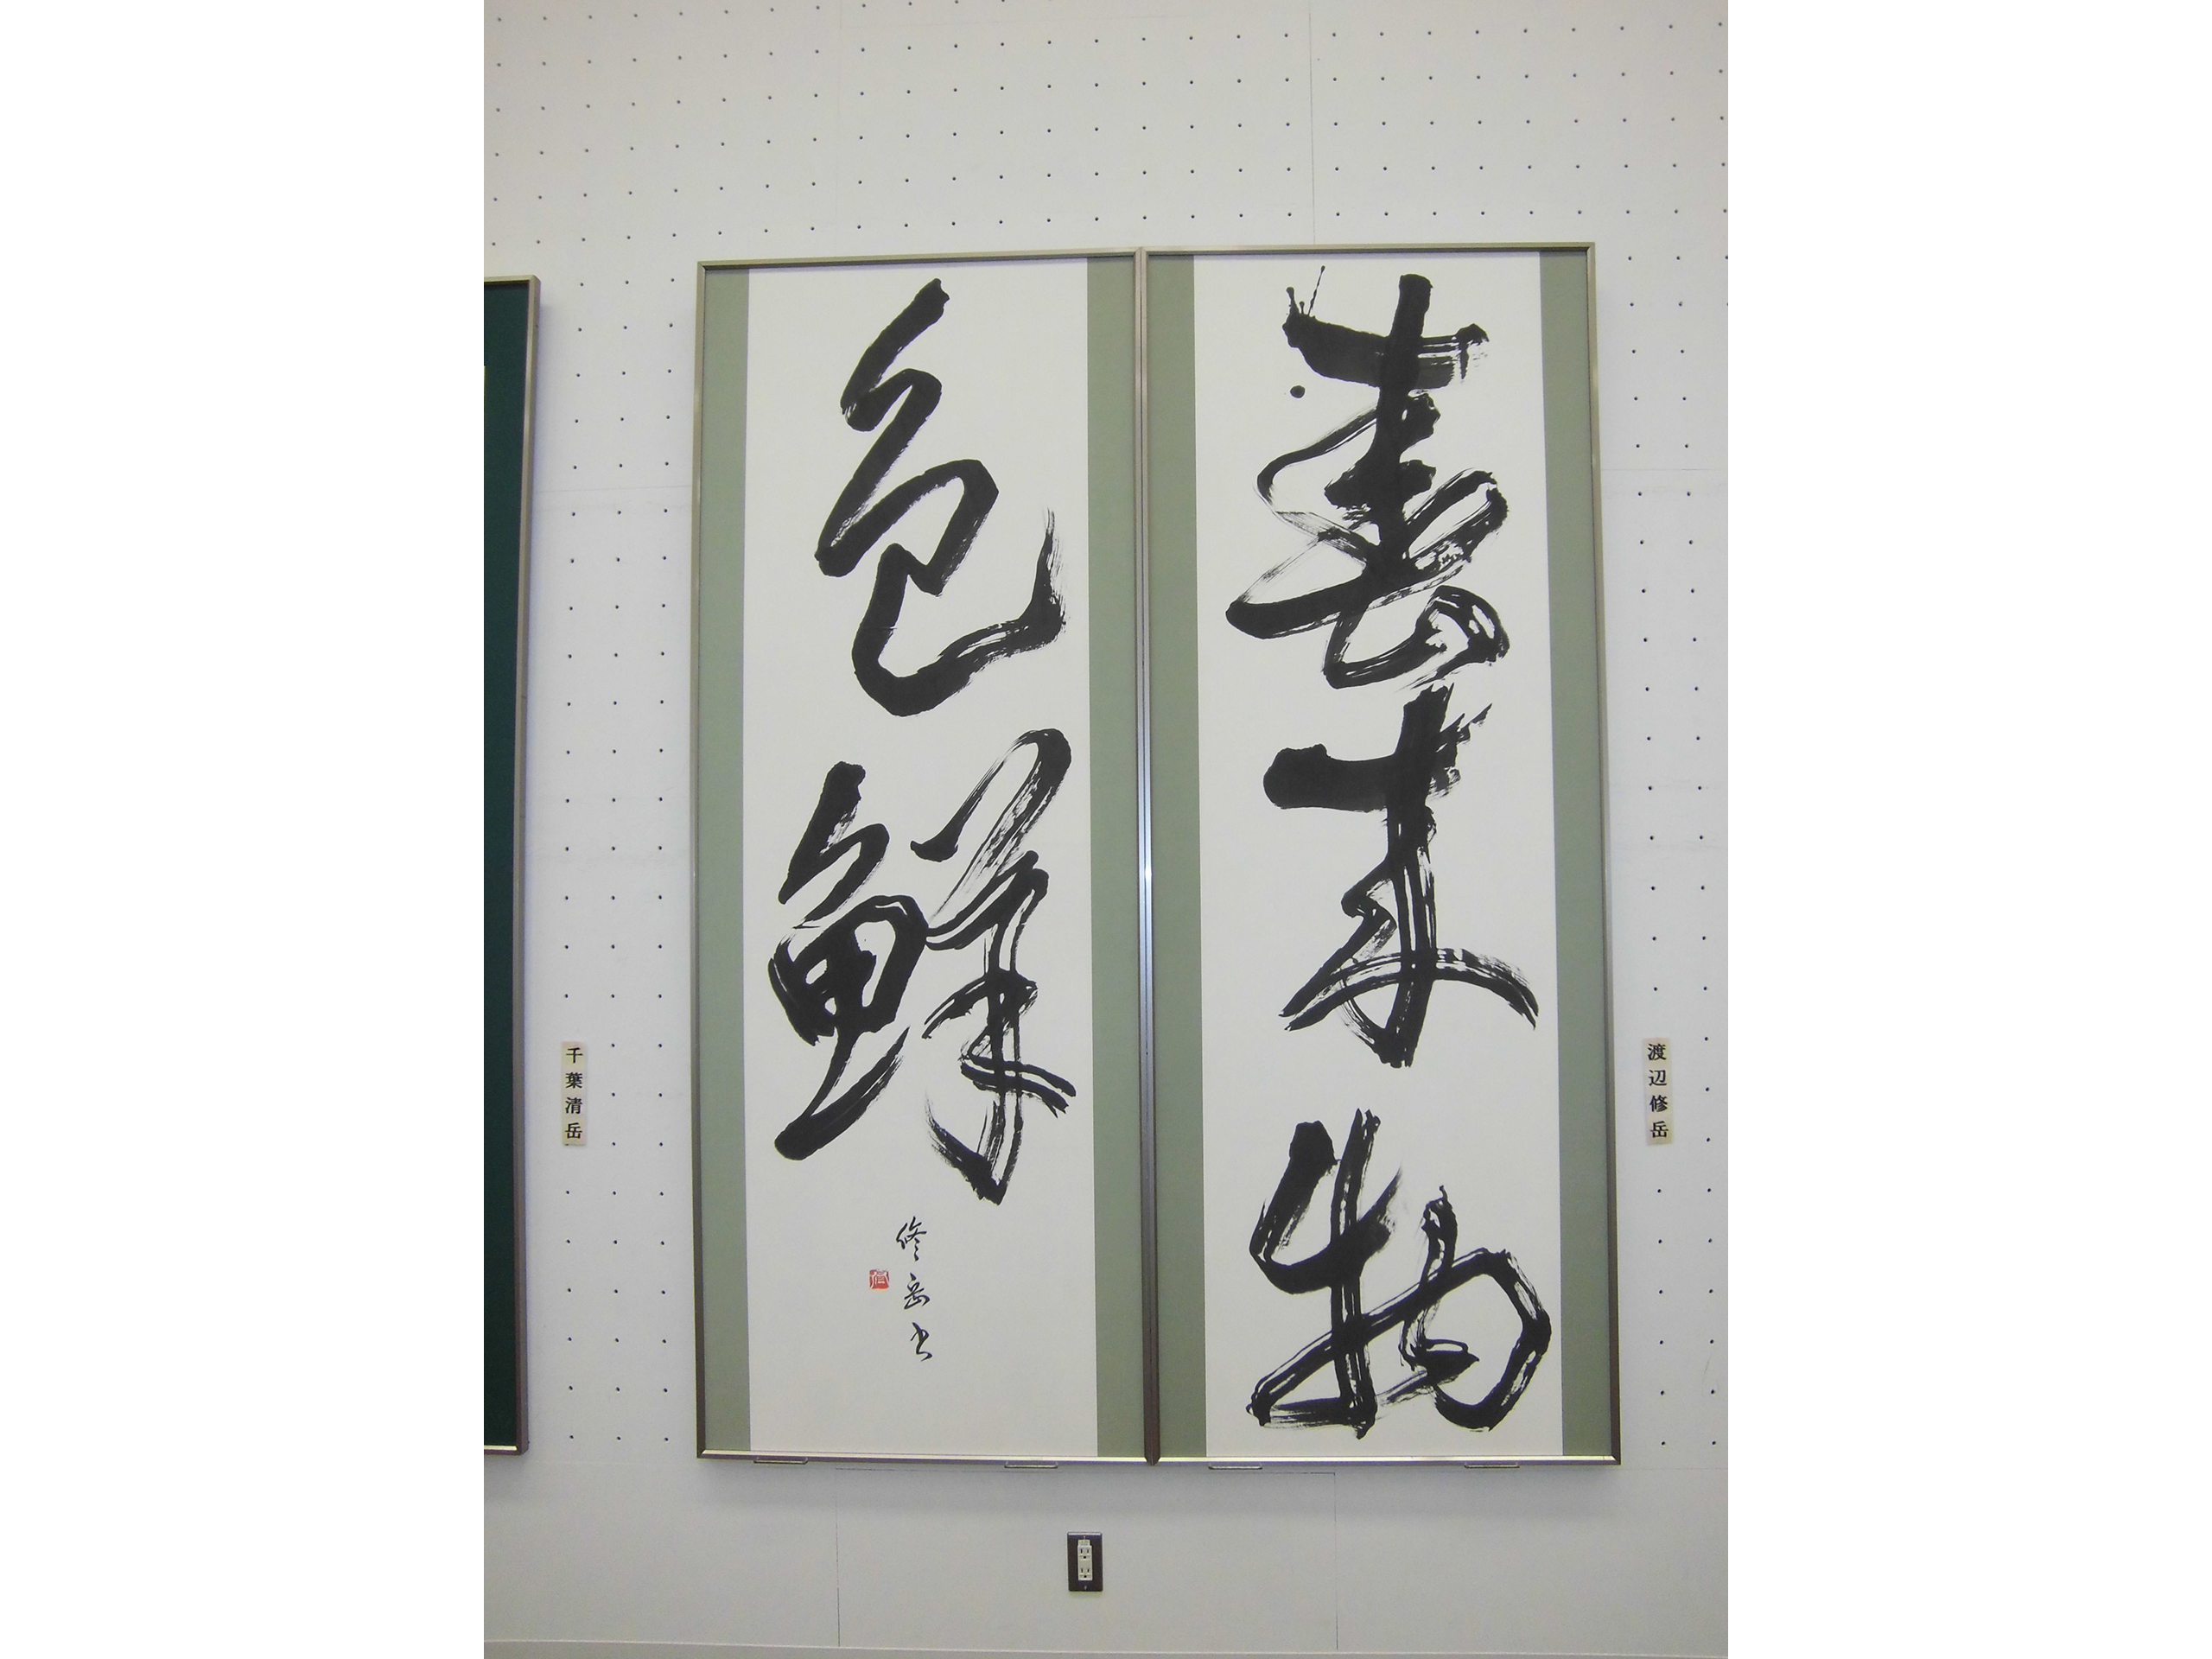 春来物
色鮮
修岳書
渡辺修岳
千葉清岳